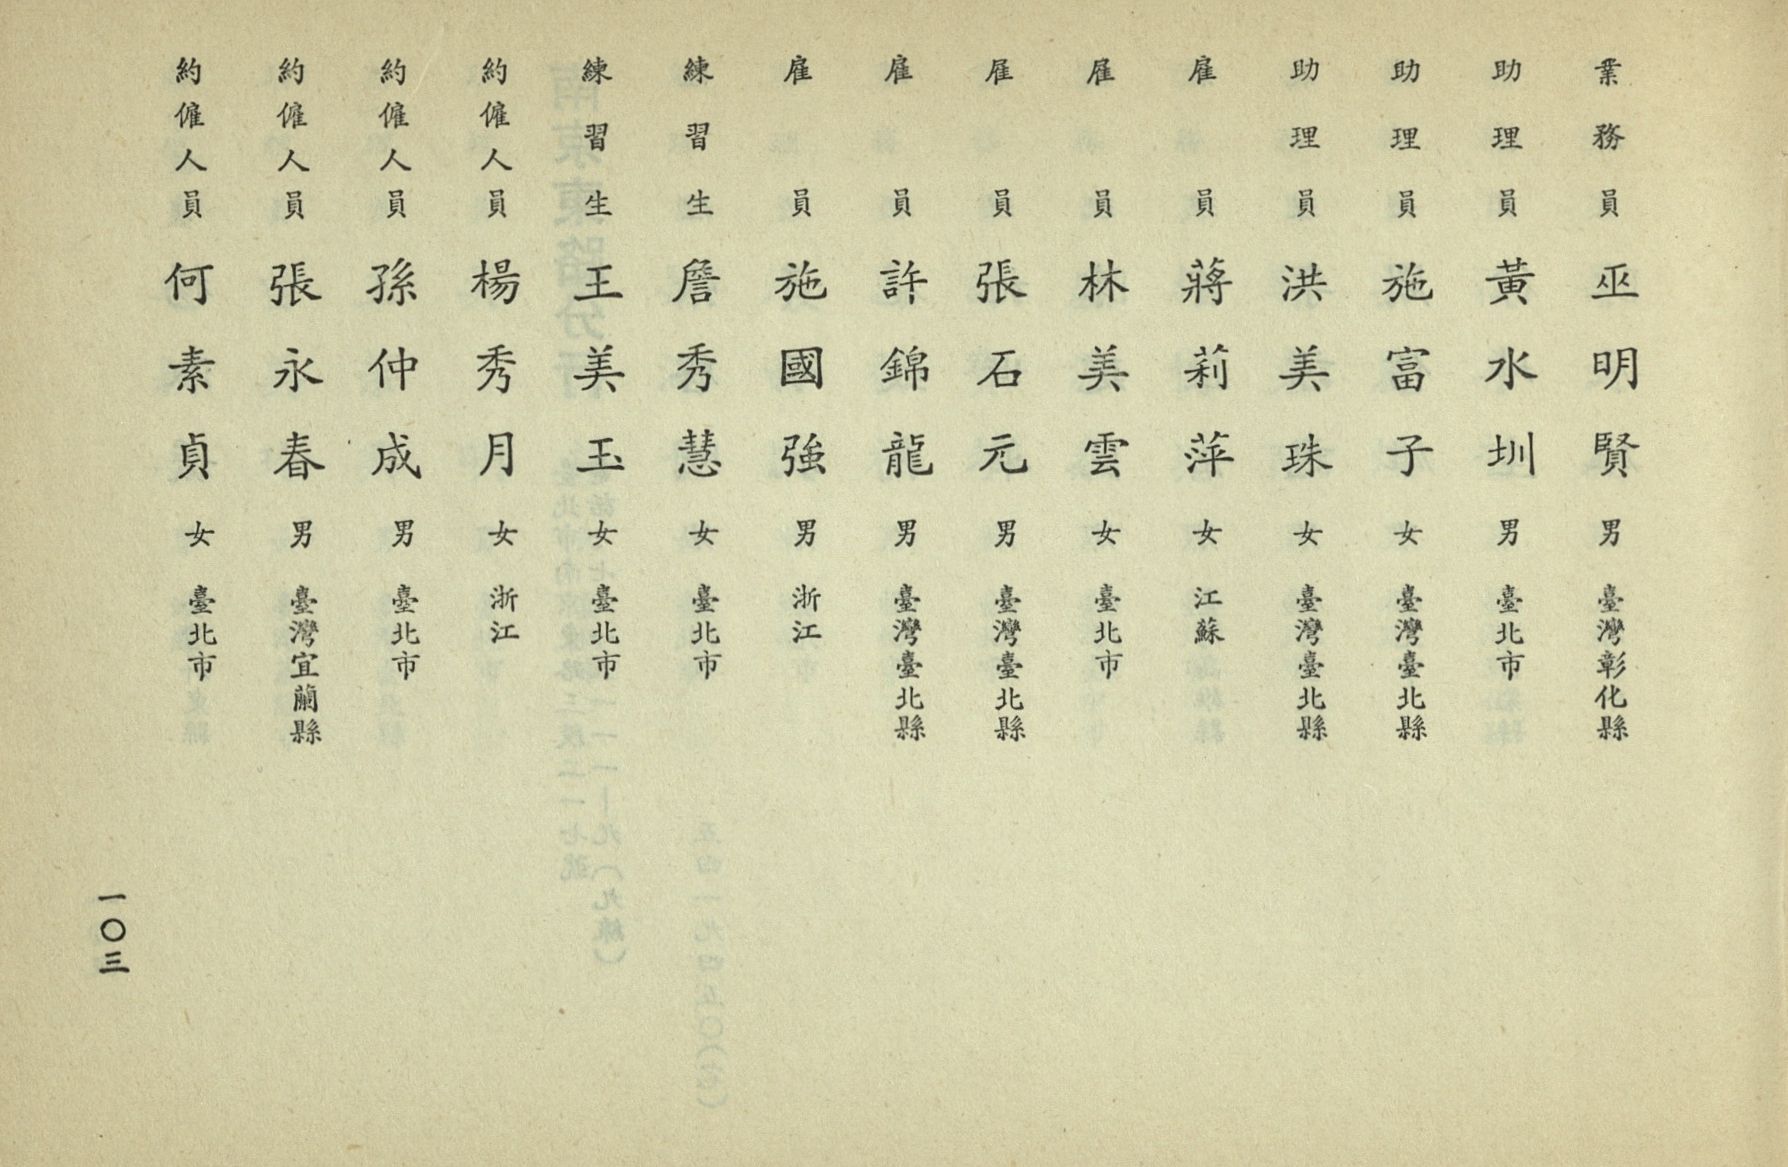 業務員 巫明賢 男 臺灣彰化縣
助理員 黃水圳 男 臺北市
助理員 施富子 女 臺灣臺北縣
助理員 洪美珠 女 臺灣臺北縣
雇員 蔣莉萍 女 江蘇
雇員 林美雲 女 臺北市
雇員 張石元 男 臺灣臺北縣
雇員 許錦龍 男 臺灣臺北縣
雇員 施國強 男 浙江
練習生 詹秀慧 女 臺北市
練習生 王美玉 女 臺北市
約僱人員 楊秀月 女 浙江
約僱人員 孫仲成 男 臺北市
約僱人員 張永春 男 臺灣宜蘭縣
約僱人員 何素貞 女 臺北市
一〇三